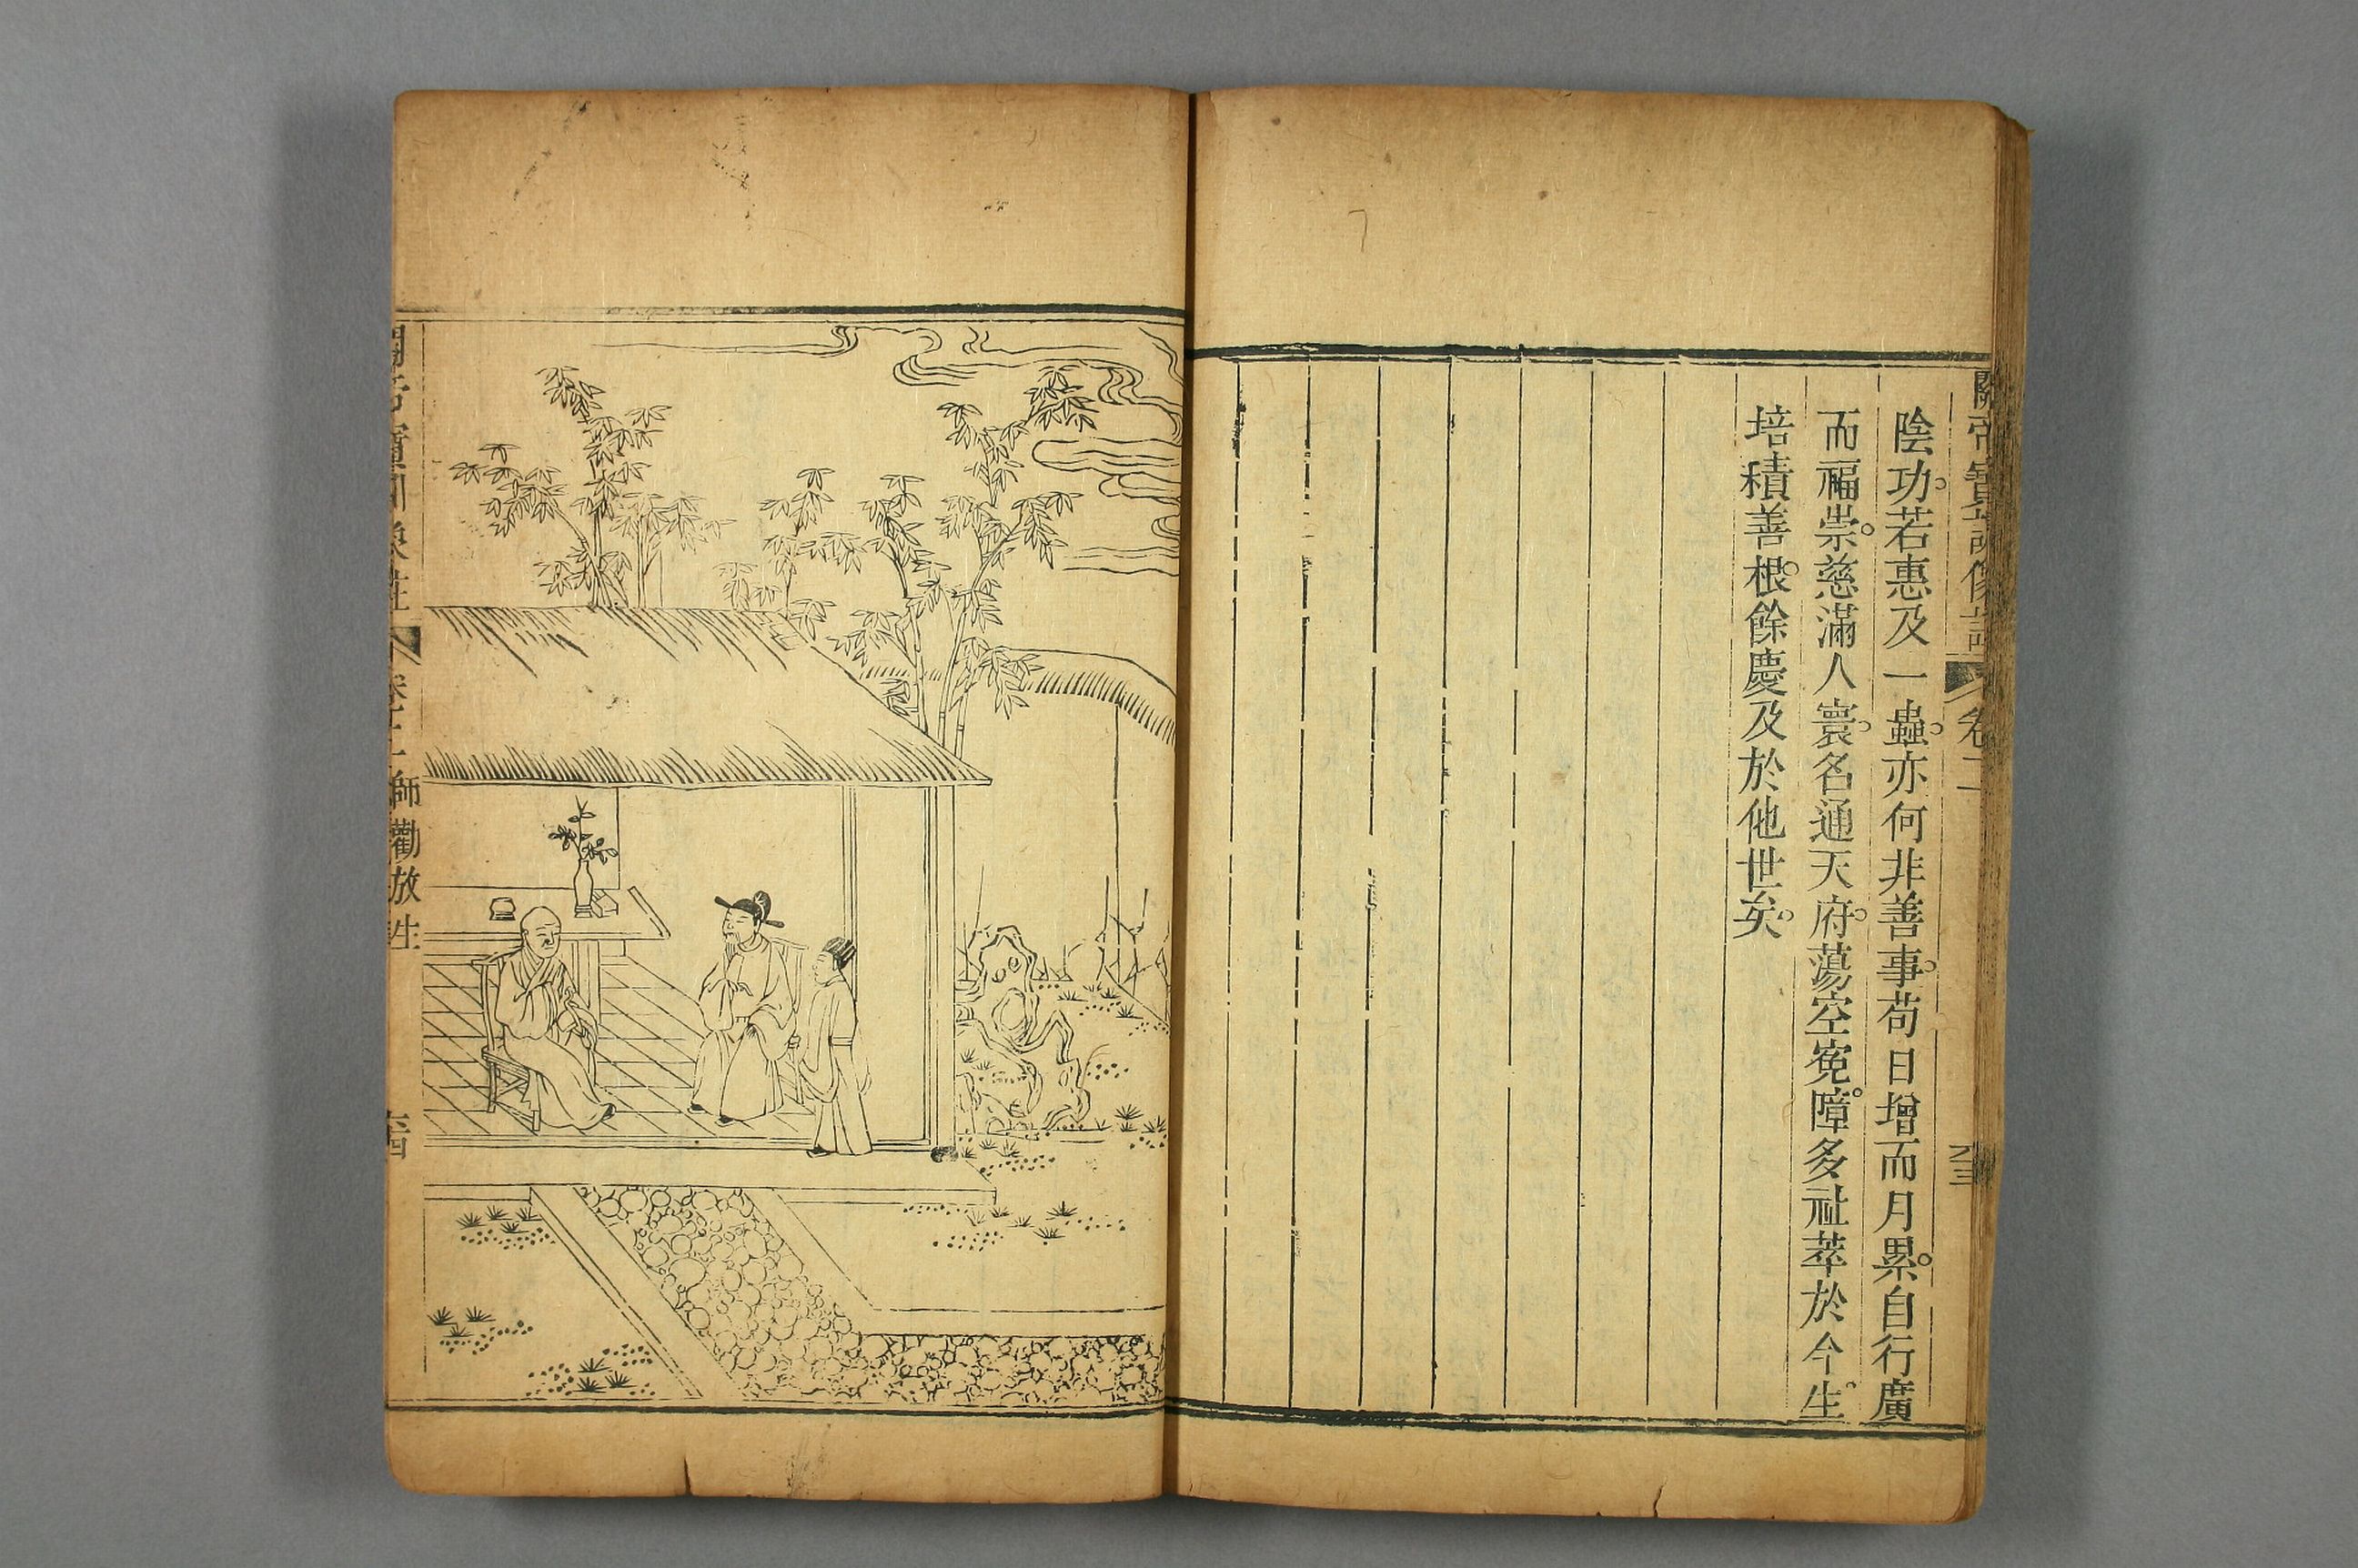 關帝寶訓像註
卷二
六三
陰功若惠及一蟲亦何非善事苟日增而月累自行廣
而福崇慈滿人寰名通天府蕩空寃障多祉萃於今生
培積善根餘慶及於他世矣
師勸放生